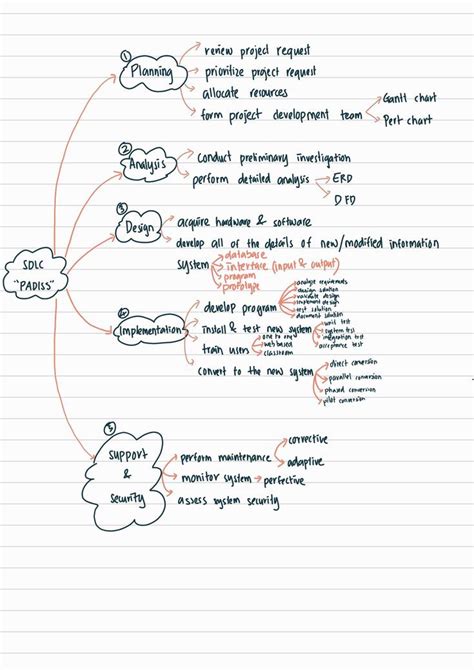 SDLC
"PADISS"
①
Planning
review project request
prioritize project request
allocate resources
form project development team
Gantt chart
Pert chart
②
Analysis
Conduct preliminary investigation
perform detailed analysis
ERD
DFD
③
Design
acquire hardware & software
develop all of the details of new/modified information
system
database
interface (input & output)
program
prototype
④
Implementation
develop program
analyze requirements
design solution
validate design
implement design
test solution
document solution
install & test new system
unit test
system test
integration test
acceptance test
train users
one to one
web based
classroom
convert to the new system
direct conversion
parallel conversion
phased conversion
pilot conversion
⑤
Support
&
Security
perform maintenance
corrective
adaptive
monitor system
perfective
assess system security